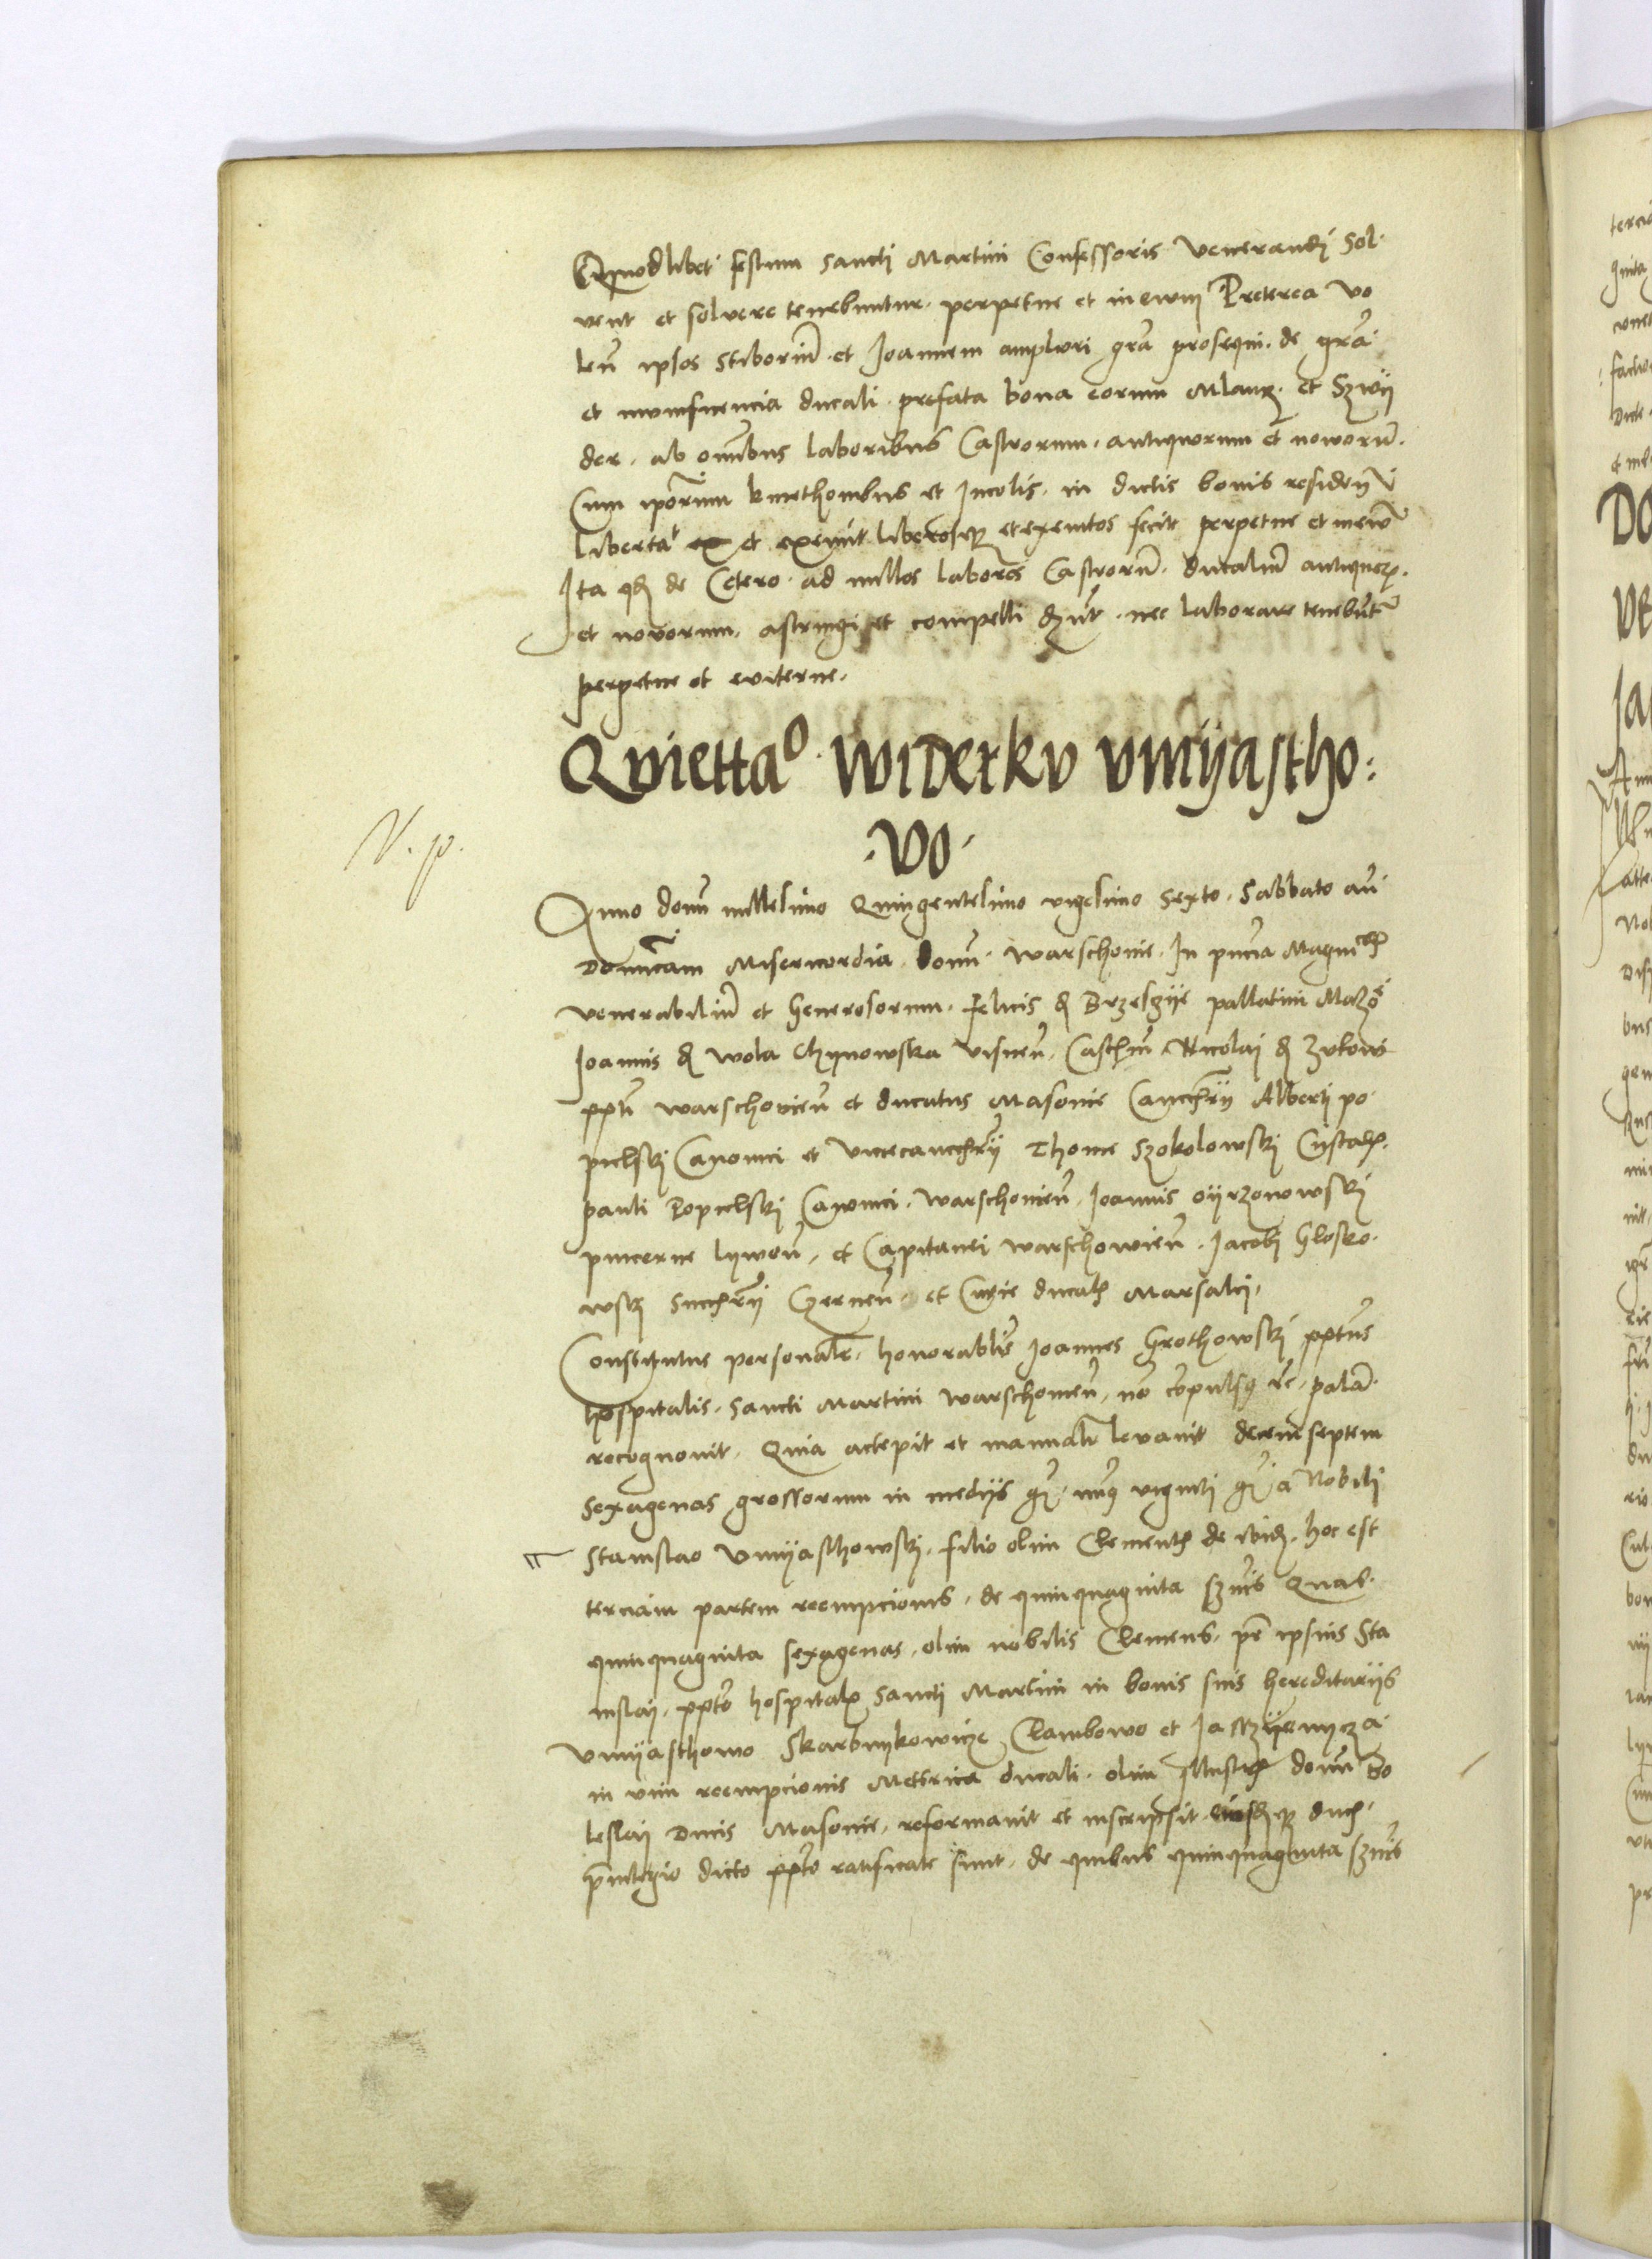 Quodlibet festum sancti Martini Confessoris Venerandj Sol
vent et solvere tenebuntur perpetue et in ewm Preterea vo
len̄ ipsos Stiborium et Joannem ampliori gr̄a prosequi de gr̄a
et munificencia ducali prefata bona eorum Et Szwy
der ab om̄ibus laboribus Castrorum antiquorum et noworū
Cum ip̄orum kmethonibus et Incolis in dictis bonis residen̄
libertat et exemit liberosqȝ et exemtos fecit perpetue et inewū
Ita qd de Cetero ad nullos labores Castrorū ducalium antiquoȝ
et novorum astringi et compelli dēnt nec laborare tenebūt
perpetue et eviterne
Quiettaᵒ widerkv vmyastho:
·vo·
Anno domī millesimo Quingentesimo vigesimo Sexto Sabbato an̄
Domīcam Misericordia domī Warschovie In pn̄cia Magni
venerabilium et Generosorum Felicis d Brzeszye pallatini Mazo
Joannis d Wola Chynowska Visnen̄ Castlni Nicolaj d Zukow
pptī Warschovien̄ et ducatus Masovie Cancelrij Albertj po
pielskj Canonici et Vicecancelrij Thome Szokolowskj Custod
pauli Popielskj Canonici Warschovien̄ Joannis Oyrzonowskj
pincerne lywen̄ et Capitanei Warschowien̄ Jacobj Glosko
wskj Czernen̄ et Curie ducalȝ Marsalcj
Constitutus personalr honorablis Joannes Grothowskj pptus
hospitalis Sancti Martini Warschovien̄ nō cōpulsȝ palā
recognovit Quia accepit et manualr levavit decem septem
Sexagenas grossorum in medijs gr̄ viginti gr̄ a Nobilj
Stanislao Vmyasthowskj filio olim Clementȝ de ibidȝ hoc est
terciam partem reempcionis de quinquaginta sexnis Quas
quinquaginta sexagenas olim nobilis Clemens pr̄ ipsius Sta
nislaj ppto hospitalȝ Sancti Martini in bonis suis hereditarijs
Vmyasthowo Skarbnykowicze Clambowo et Jastrzyemycza
in vim reempcionis Mettrica ducali olim Illustrȝ domī Bo
leslaj Ducis Masovie reformavit et inscripsit eiusdqȝ ducȝ
privilegio dicto ppto ratificate sunt de quibus quinquaginta sexnis
N. p.